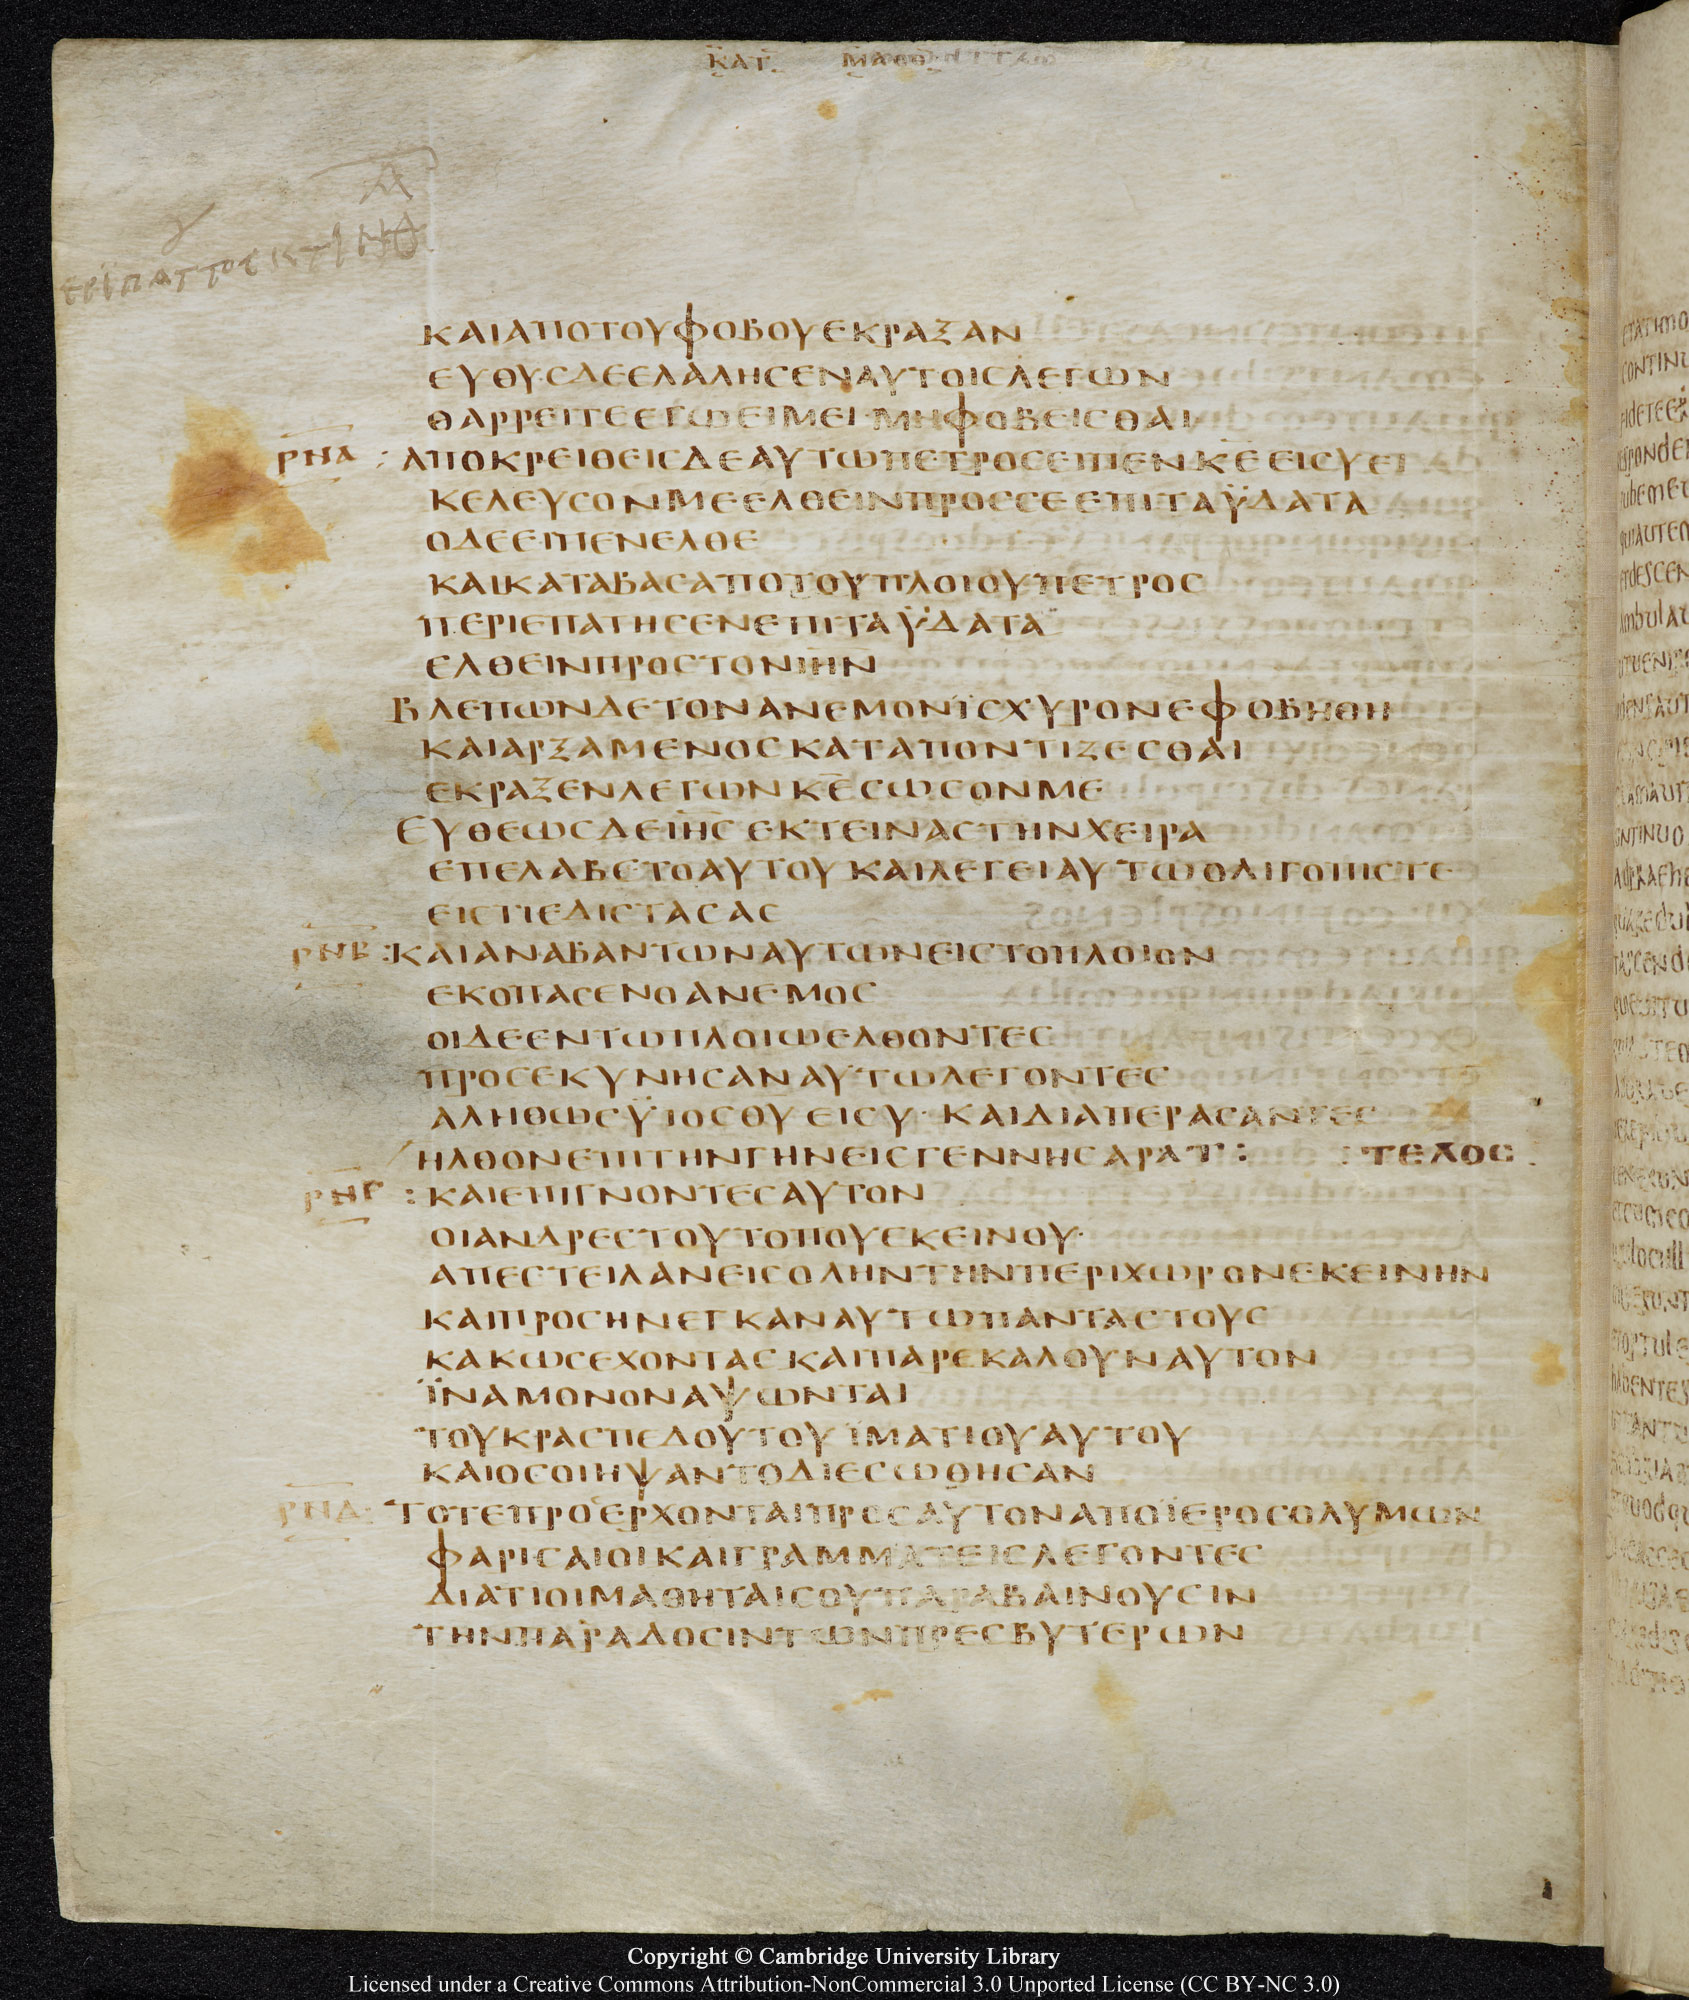 ΚΑΤ ΜΑΘΘ
ΚΑΙΑΠΟΤΟΥΦΟΒΟΥΕΚΡΑΞΑΝ
ΕΥΘΥϹΔΕΕΛΑΛΗϹΕΝΑΥΤΟΙϹΛΕΓΩΝ
ΘΑΡΡΕΙΤΕΕΓΩΕΙΜΕΙ·ΜΗΦΟΒΕΙϹΘΑΙ
ΡΝΑ : ΑΠΟΚΡΕΙΘΕΙϹΔΕΑΥΤΩΠΕΤΡΟϹΕΙΠΕΝΚ̅Ε̅ΕΙϹΥΕΙ
ΚΕΛΕΥϹΟΝΜΕΕΛΘΕΙΝΠΡΟϹϹΕΕΠΙΤΑΫΔΑΤΑ
ΟΔΕΕΙΠΕΝΕΛΘΕ
ΚΑΙΚΑΤΑΒΑϹΑΠΟΤΟΥΠΛΟΙΟΥΠΕΤΡΟϹ
ΠΕΡΙΕΠΑΤΗϹΕΝΕΠΙΤΑΫΔΑΤΑ
ΕΛΘΕΙΝΠΡΟϹΤΟΝΙ̅Η̅Ν̅
ΒΛΕΠΩΝΔΕΤΟΝΑΝΕΜΟΝΪϹΧΥΡΟΝΕΦΟΒΗΘΗ
ΚΑΙΑΡΞΑΜΕΝΟϹΚΑΤΑΠΟΝΤΙΖΕϹΘΑΙ
ΕΚΡΑΞΕΝΛΕΓΩΝΚ̅Ε̅ϹΩϹΟΝΜΕ
ΕΥΘΕΩϹΔΕΙ̅Η̅Ϲ̅ΕΚΤΕΙΝΑϹΤΗΝΧΕΙΡΑ
ΕΠΕΛΑΒΕΤΟΑΥΤΟΥΚΑΙΛΕΓΕΙΑΥΤΩΟΛΙΓΟΠΙϹΤΕ
ΕΙϹΤΙΕΔΙϹΤΑϹΑϹ
ΡΝΒ :ΚΑΙΑΝΑΒΑΝΤΩΝΑΥΤΩΝΕΙϹΤΟΠΛΟΙΟΝ
ΕΚΟΠΑϹΕΝΟΑΝΕΜΟϹ
ΟΙΔΕΕΝΤΩΠΛΟΙΩΕΛΘΟΝΤΕϹ
ΠΡΟϹΕΚΥΝΗϹΑΝΑΥΤΩΛΕΓΟΝΤΕϹ
ΑΛΗΘΩϹΫΙΟϹΘΥΕΙϹΥ· ΚΑΙΔΙΑΠΕΡΑϹΑΝΤΕϹ
ΗΛΘΟΝΕΠΙΤΗΝΓΗΝΕΙϹΓΕΝΝΗϹΑΡΑΤ : : ΤΕΛΟϹ
ΡΝΓ : ΚΑΙΕΠΙΓΝΟΝΤΕϹΑΥΤΟΝ
ΟΙΑΝΔΡΕϹΤΟΥΤΟΠΟΥΕΚΕΙΝΟΥ·
ΑΠΕϹΤΕΙΛΑΝΕΙϹΟΛΗΝΤΗΝΠΕΡΙΧΩΡΟΝΕΚΕΙΝΗΝ
ΚΑΙΠΡΟϹΗΝΕΓΚΑΝΑΥΤΩΠΑΝΤΑϹΤΟΥϹ
ΚΑΚΩϹΕΧΟΝΤΑϹΚΑΙΠΑΡΕΚΑΛΟΥΝΑΥΤΟΝ
ΪΝΑΜΟΝΟΝΑΨΩΝΤΑΙ
ΤΟΥΚΡΑϹΠΕΔΟΥΤΟΥΪΜΑΤΙΟΥΑΥΤΟΥ
ΚΑΙΟϹΟΙΗΨΑΝΤΟΔΙΕϹΩΘΗϹΑΝ
ΡΝΔ: ΤΟΤΕΠΡΟϹΕΡΧΟΝΤΑΙΠΡΟϹΑΥΤΟΝΑΠΟΪΕΡΟϹΟΛΥΜΩΝ
ΦΑΡΙϹΑΙΟΙΚΑΙΓΡΑΜΜΑΤΕΙϹΛΕΓΟΝΤΕϹ
ΔΙΑΤΙΟΙΜΑΘΗΤΑΙϹΟΥΠΑΡΑΒΑΙΝΟΥϹΙΝ
ΤΗΝΠΑΡΑΔΟϹΙΝΤΩΝΠΡΕϹΒΥΤΕΡΩΝ
Copyright © Cambridge University Library
Licensed under a Creative Commons Attribution-NonCommercial 3.0 Unported License (CC BY-NC 3.0)